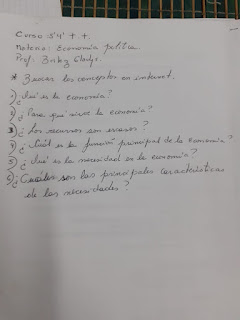 Curso: 5'4' T.T.
Materia: Economía política.
Prof: Zuley Gladys.
* Buscar los conceptos en internet.
1) ¿Qué es la economía?
2) ¿Para qué sirve la economía?
3) ¿Los recursos son escasos?
4) ¿Cuál es la función principal de la economía?
5) ¿Qué es la necesidad en la economía?
6) ¿Cuáles son las principales características
de las necesidades?